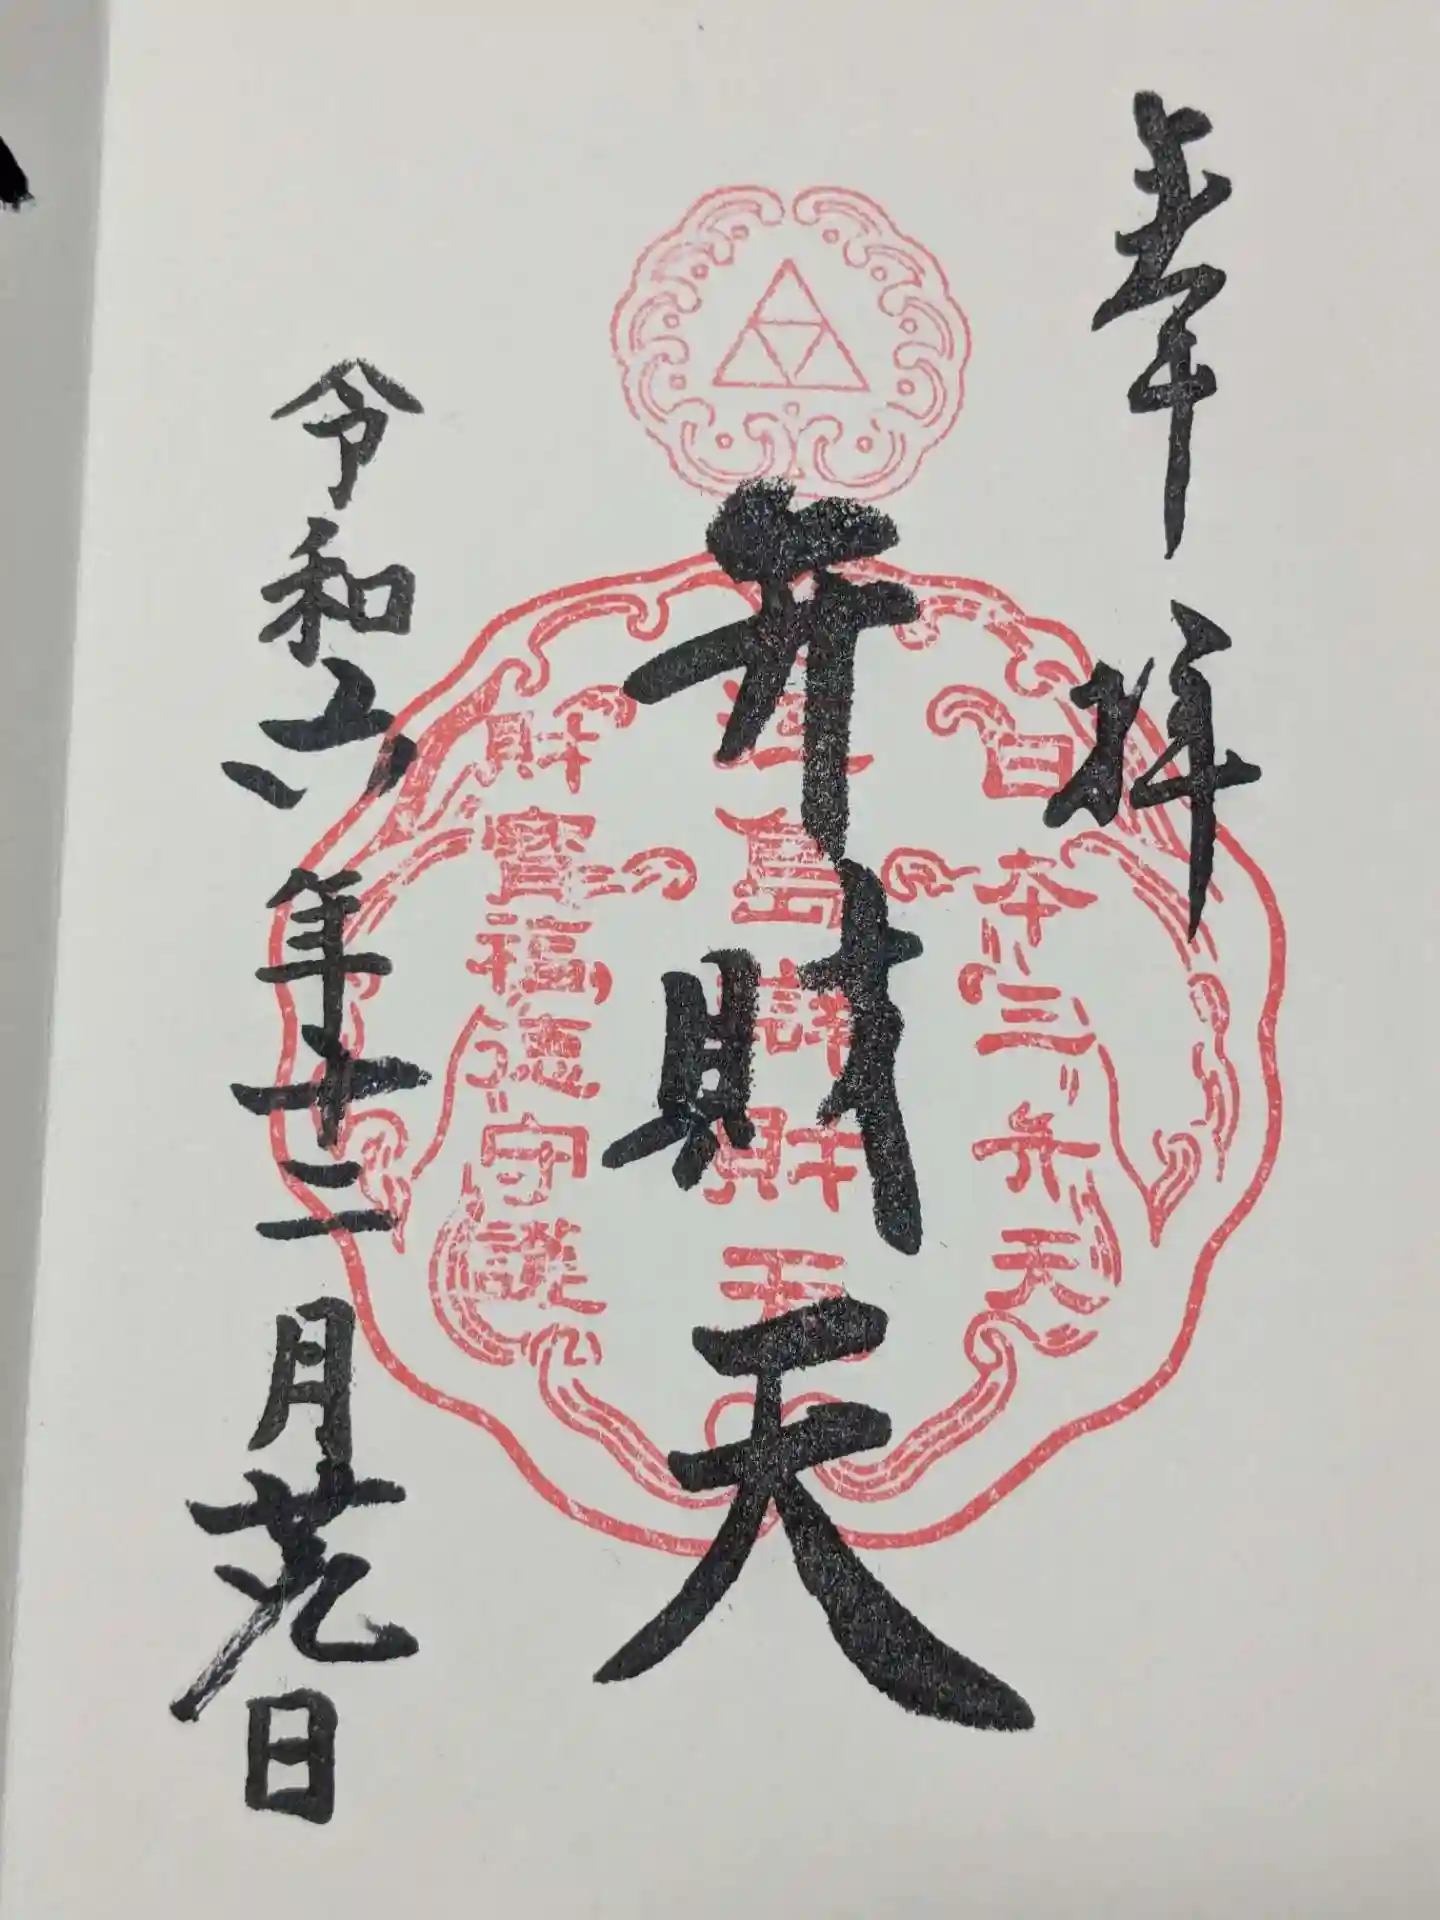 奉拝
日本三弁天
弁財天
江島辯財天
財寶福徳守護
令和六年十二月廿九日